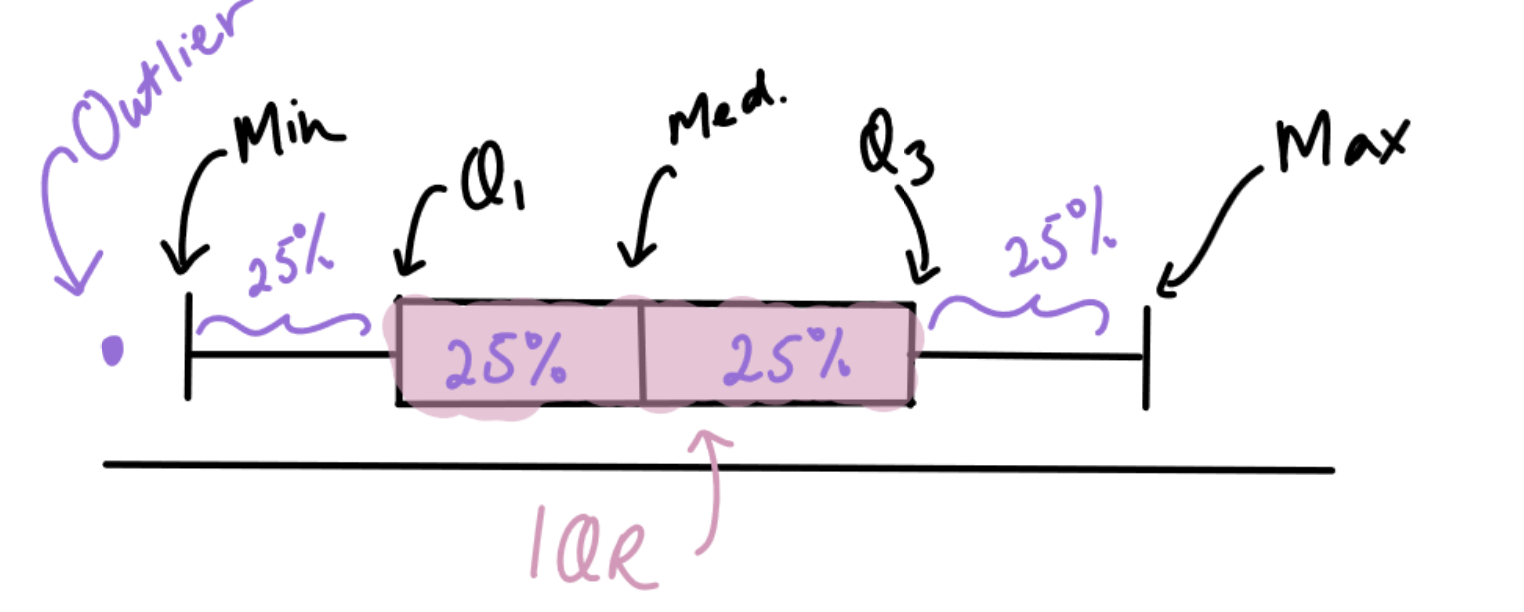 Outlier
Min
Med.
Q3
Max
Q1
25%
25%
25%
25%
IQR